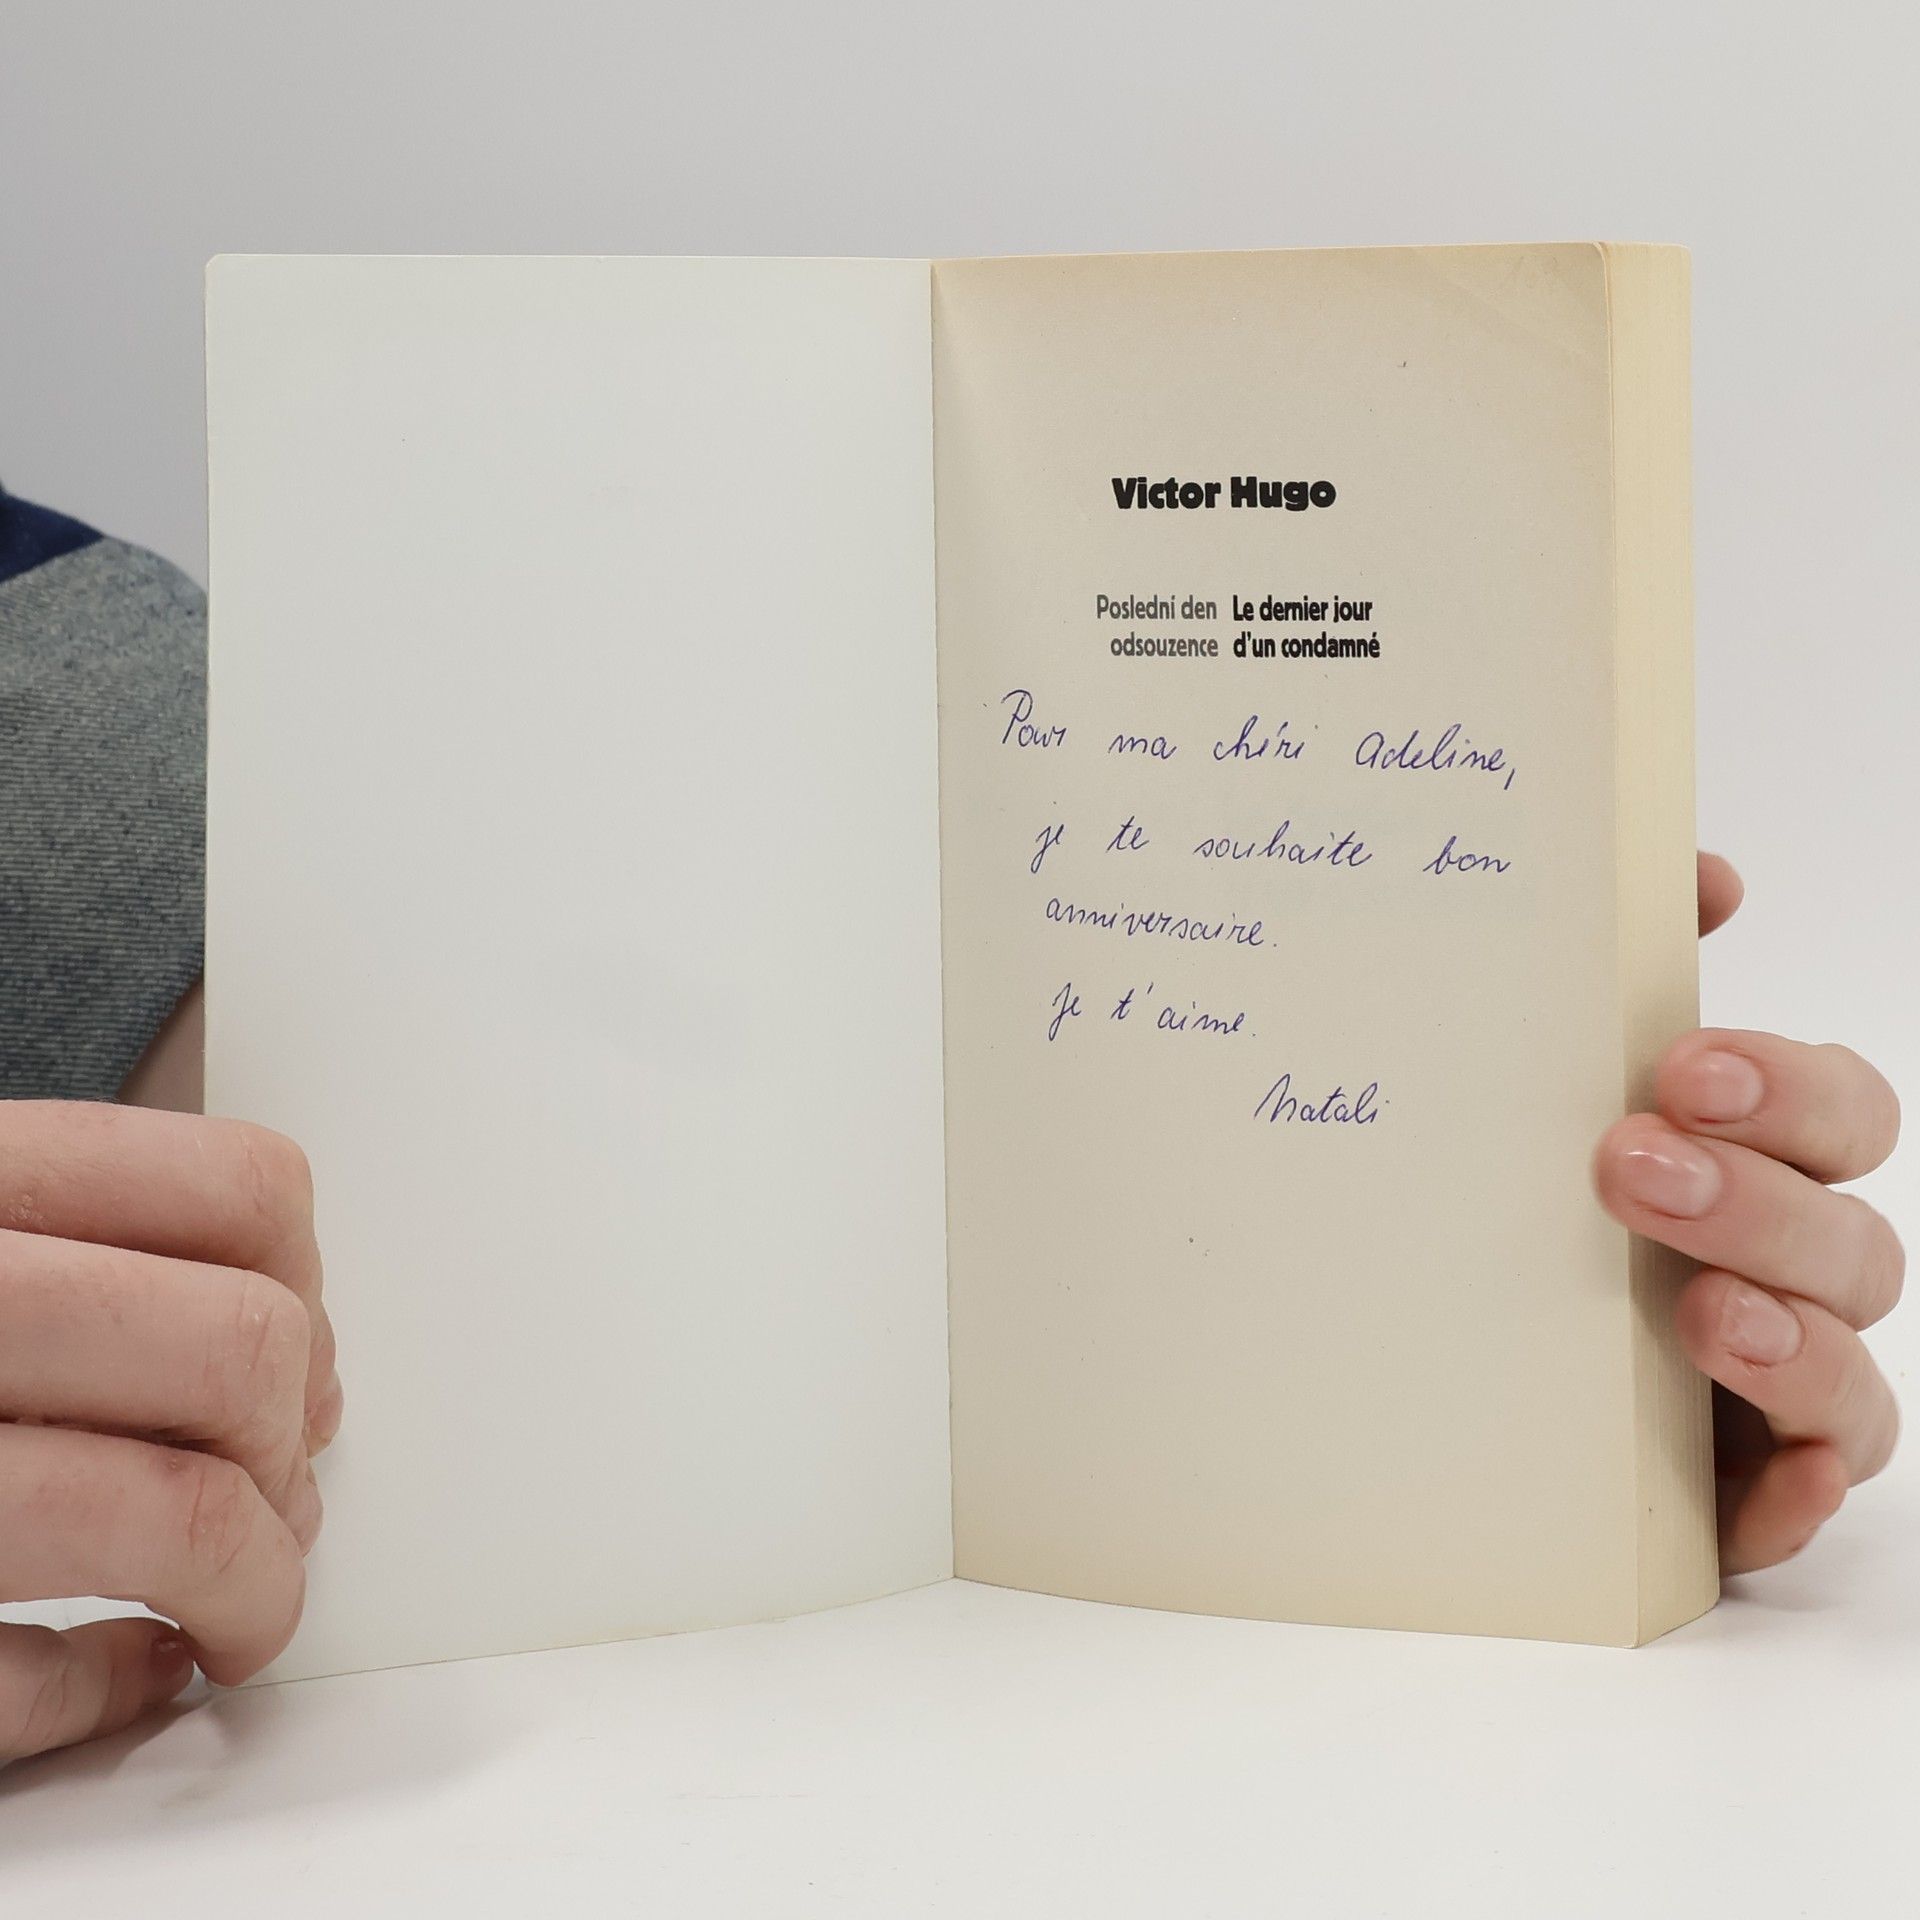 Victor Hugo
Poslední den Le dernier jour
odsouzence d'un condamné
Pour ma chéri Adeline,
je te souhaite bon
anniversaire.
Je t'aime.
Natali